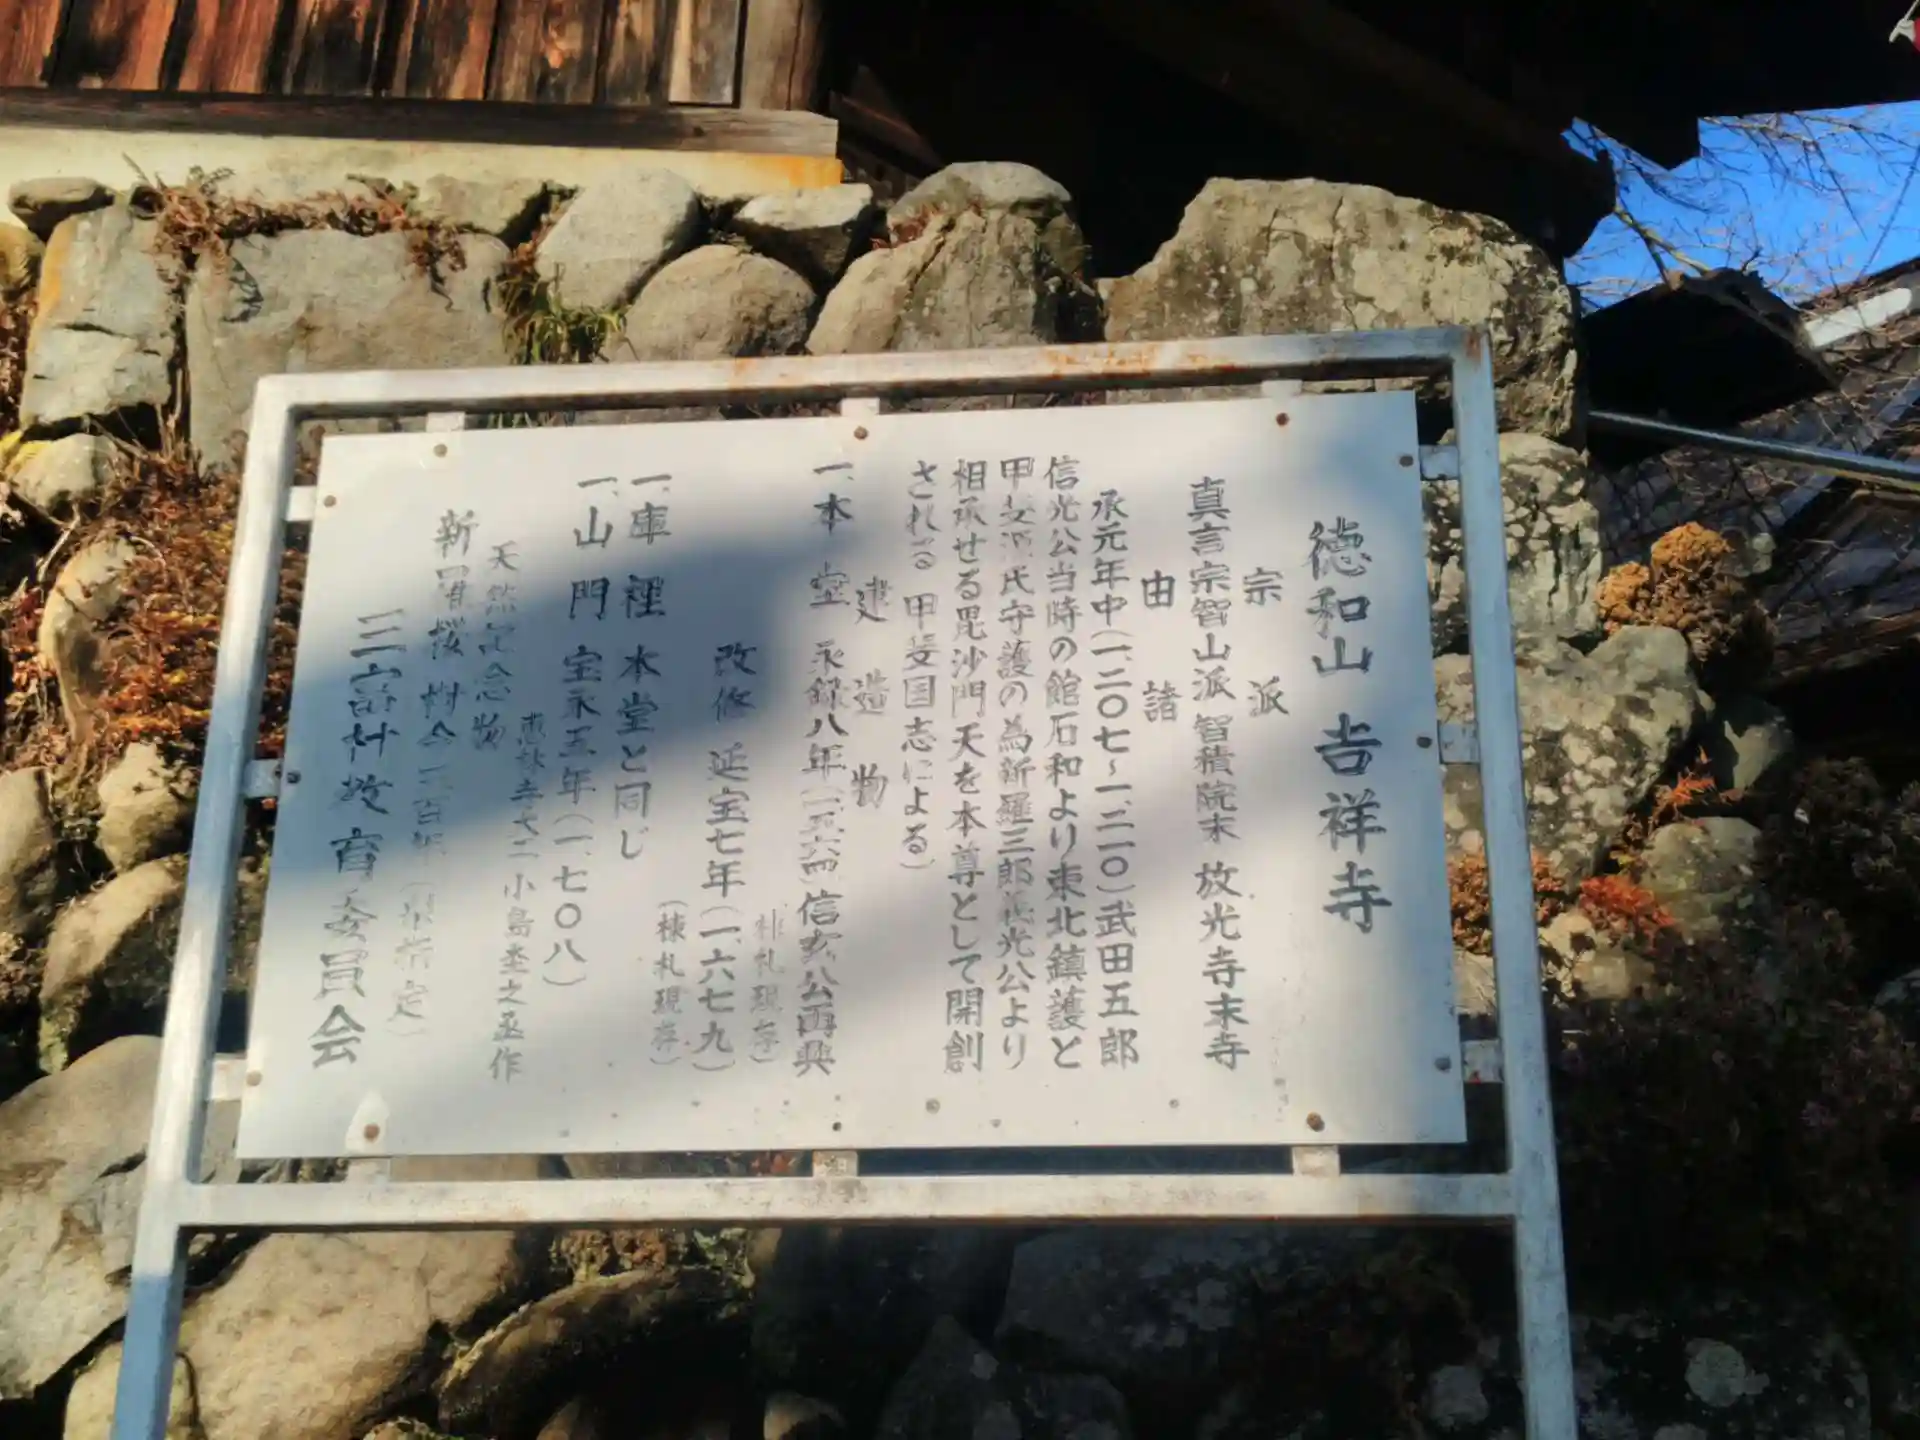 徳和山 吉祥寺
宗派
真言宗智山派 智積院末 放光寺末寺
由諸
承元年中(一、二〇七~一、二一〇)武田五郎
信光公当時の館石和より東北鎮護と
甲斐源氏守護の為新羅三郎義光公より
相承せる毘沙門天を本尊として開創
される 甲斐国志による)
建造物
一、本堂 永録八年 信玄公再興
札現存)
改修 延宝七年(一、六七九)
(棟札現存)
一、庫裡 本堂と同じ
一、山門 宝永五年(一、七〇八)
小島 之丞作
天然記念物
新羅桜 樹令三百年
三富村教育委員会